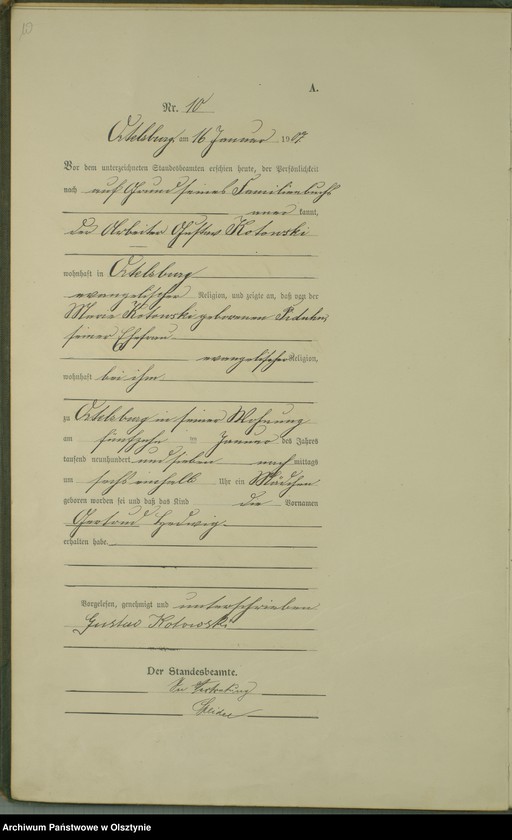 10
A.
Nr. 10
Ortelsburg am 16 Januar 1907
Vor dem unterzeichneten Standesbeamten erschien heute, der Persönlichkeit
nach auf Grund seines Familienbuchs
aner kannt,
der Arbeiter Gustav Kotowski
wohnhaft in Ortelsburg
evangelischer Religion, und zeigte an, daß von der
Marie Kotowski geborenen
seiner Ehefrau
evangelischer Religion,
wohnhaft bei ihm
zu Ortelsburg in seiner Wohnung
am fünfzehn ten Januar des Jahres
tausend neunhundert und sieben nach mittags
um sechs einhalb Uhr ein Mädchen
geboren worden sei und daß das Kind die Vornamen
Gertrud Hedwig
erhalten habe.
Vorgelesen, genehmigt und unterschrieben
Gustav Kotowski
Der Standesbeamte.
In Vertretung
Archiwum Państwowe w Olsztynie